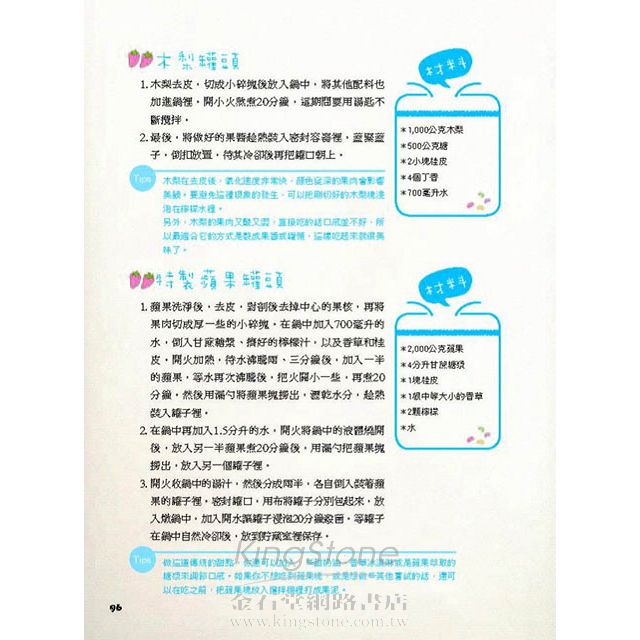 木梨罐頭
1. 木梨去皮，切成小碎塊後放入鍋中，將其他配料也
加進鍋裡，開小火熬煮20分鐘，這期間要用湯匙不
斷攪拌。
2. 最後，將做好的果醬趁熱裝入密封容器裡，蓋緊蓋
子，倒扣放置，待其冷卻後再把罐口朝上。
材料
*1,000公克木梨
*500公克糖
*2小塊桂皮
*4個丁香
*700毫升水
Tips
木梨在去皮後，氧化速度非常快，顏色變深的果肉會影響
美觀。要避免這種現象的發生，可以把剛切好的木梨塊浸
泡在檸檬水裡。
另外，木梨的果肉又酸又澀，直接吃的話口感並不好，所
以最適合它的方式是製成果醬或罐頭，這樣吃起來就很美
味了。
特製蘋果罐頭
1. 蘋果洗淨後，去皮，對剖後去掉中心的果核，再將
果肉切成厚一些的小碎塊。在鍋中加入700毫升的
水，倒入甘蔗糖漿、擠好的檸檬汁，以及香草和桂
皮，開火加熱，待水沸騰兩、三分鐘後，加入一半
的蘋果，等水再次沸騰後，把火關小一些，再煮20
分鐘，然後用漏勺將蘋果塊撈出，瀝乾水分，趁熱
裝入罐子裡。
2. 在鍋中再加入1.5分升的水，開火將鍋中的液體燒開
後，放入另一半蘋果煮20分鐘後，用漏勺把蘋果塊
撈出，放入另一個罐子裡。
3. 開火收鍋中的湯汁，然後分成兩半，各自倒入裝著蘋
果的罐子裡，密封罐口，用布將罐子分別包起來，放
入燉鍋中，加入開水漏罐子浸泡20分鐘殺菌。等罐子
在鍋中自然冷卻後，放到貯藏室裡保存。
材料
*2,000公克蘋果
*4分升甘蔗糖漿
*1塊桂皮
*1根中等大小的香草
*2顆檸檬
*水
Tips
做這道傳統的甜點，你還可以加入一些鮮奶油、香草冰淇淋或是蘋果萃取的
糖漿來調節口感。如果你不想吃到蘋果塊，或是想做些其他嘗試的話，還可
以在吃之前，把蘋果塊放入攪拌機裡打成果泥。
KingStone
金石堂網路書店
www.kingstone.com.tw
96